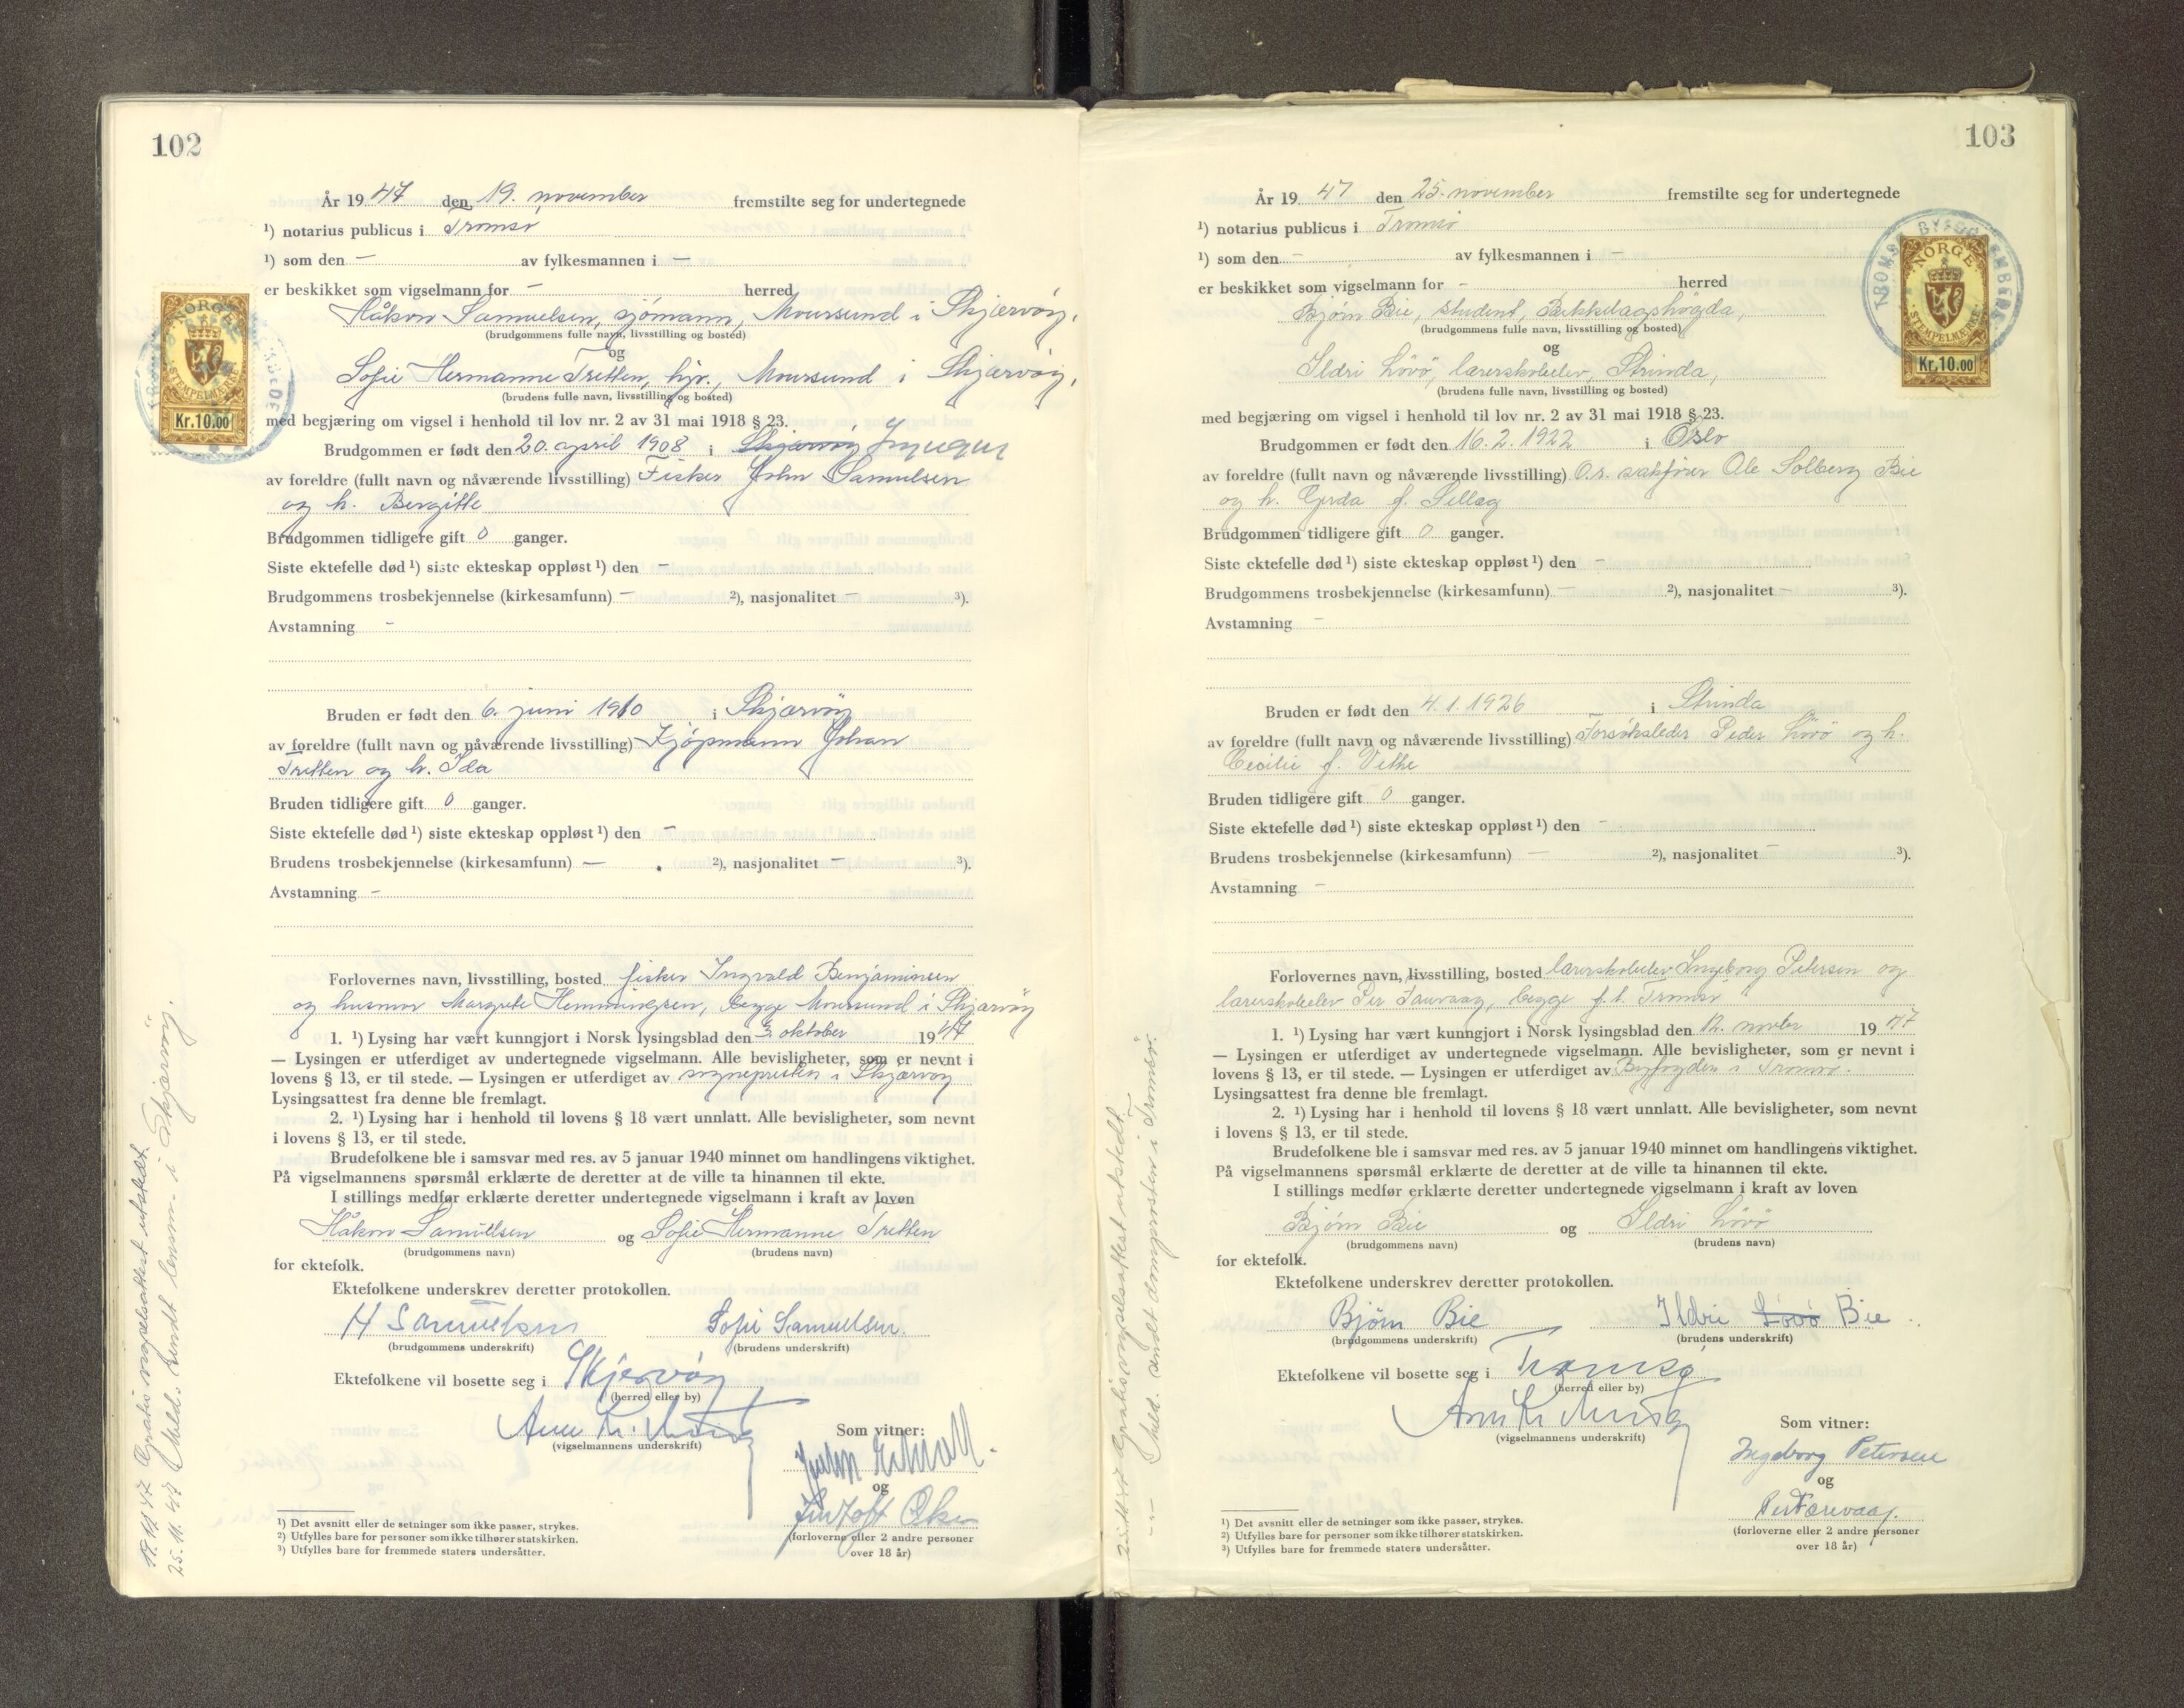 102
År 1947 den 19. november fremstilte seg for undertegnede
¹) notarius publicus i Tromsø
¹) som den – av fylkesmannen i –
er beskikket som vigselmann for – herred
Håkon Samuelsen, sjömann, Moursund i Skjærvöy,
(brudgommens fulle navn, livsstilling og bosted)
og
Sofie Hermanne Tretten, hjv., Moursund i Skjærvöy,
(brudens fulle navn, livsstilling og bosted)
NORGE
STEMPELMERKE
Kr.10.00
med begjæring om vigsel i henhold til lov nr. 2 av 31 mai 1918 § 23.
Brudgommen er født den 20. april 1908 i Skjærvöy
av foreldre (fullt navn og nåværende livsstilling) Fisker John Samuelsen
og h. Bergitte
Brudgommen tidligere gift 0 ganger.
Siste ektefelle død ¹) siste ekteskap oppløst ¹) den –
Brudgommens trosbekjennelse (kirkesamfunn) – ²), nasjonalitet – ³).
Avstamning –
Bruden er født den 6. juni 1910 i Skjærvöy
av foreldre (fullt navn og nåværende livsstilling) Kjöpmann Johan
Tretten og h. Ida
Bruden tidligere gift 0 ganger.
Siste ektefelle død ¹) siste ekteskap oppløst ¹) den –
Brudens trosbekjennelse (kirkesamfunn) – ²), nasjonalitet – ³).
Avstamning –
Forlovernes navn, livsstilling, bosted fisker Ingvald Benjaminsen
og husmor Margrete Hemmingsen, begge Moursund i Skjærvöy
1. ¹) Lysing har vært kunngjort i Norsk lysingsblad den 3 oktober 1947
— Lysingen er utferdiget av undertegnede vigselmann. Alle bevisligheter, som er nevnt i
lovens § 13, er til stede. — Lysingen er utferdiget av sognepresten i Skjærvøy
Lysingsattest fra denne ble fremlagt.
2. ¹) Lysing har i henhold til lovens § 18 vært unnlatt. Alle bevisligheter, som nevnt
i lovens § 13, er til stede.
Brudefolkene ble i samsvar med res. av 5 januar 1940 minnet om handlingens viktighet.
På vigselmannens spørsmål erklærte de deretter at de ville ta hinannen til ekte.
I stillings medfør erklærte deretter undertegnede vigselmann i kraft av loven
Håkon Samuelsen og Sofie Hermanne Tretten
(brudgommens navn) (brudens navn)
for ektefolk.
Ektefolkene underskrev deretter protokollen.
H Samuelsen Sofie Samuelsen.
(brudgommens underskrift) (brudens underskrift)
Ektefolkene vil bosette seg i Skjervøy
(herred eller by)
(vigselmannens underskrift)
Som vitner:
og
(forloverne eller 2 andre personer
over 18 år)
¹) Det avsnitt eller de setninger som ikke passer, strykes.
²) Utfylles bare for personer som ikke tilhører statskirken.
³) Utfylles bare for fremmede staters undersåtter.
19.11.47 Gratis vigselsattest utstedt.
25.11.47 Meld. sendt lensm. i Skjærvöy.
103
År 1947 den 25. november fremstilte seg for undertegnede
¹) notarius publicus i Tromsø
¹) som den – av fylkesmannen i –
er beskikket som vigselmann for – herred
Bjørn Bie, student, Bekkelagshøgda,
(brudgommens fulle navn, livsstilling og bosted)
og
Ildri Lövö, lærerskoleelev, Strinda,
(brudens fulle navn, livsstilling og bosted)
NORGE
STEMPELMERKE
Kr.10.00
med begjæring om vigsel i henhold til lov nr. 2 av 31 mai 1918 § 23.
Brudgommen er født den 16. 2. 1922 i Oslo
av foreldre (fullt navn og nåværende livsstilling) O.r. sakfører Ole Solberg Bie
og h. Gerda f. Selläg
Brudgommen tidligere gift 0 ganger.
Siste ektefelle død ¹) siste ekteskap oppløst ¹) den –
Brudgommens trosbekjennelse (kirkesamfunn) – ²), nasjonalitet – ³).
Avstamning –
Bruden er født den 4. 1. 1926 i Strinda
av foreldre (fullt navn og nåværende livsstilling) Forsøksleder Peder Lövö og h.
Cecilie f. Vethe
Bruden tidligere gift 0 ganger.
Siste ektefelle død ¹) siste ekteskap oppløst ¹) den –
Brudens trosbekjennelse (kirkesamfunn) – ²), nasjonalitet – ³).
Avstamning –
Forlovernes navn, livsstilling, bosted lærerskoleelev Ingeborg Petersen og
lærerskoleelev Per Tauvaag, begge f.t. Tromsø
1. ¹) Lysing har vært kunngjort i Norsk lysingsblad den 12. novbr 1947
— Lysingen er utferdiget av undertegnede vigselmann. Alle bevisligheter, som er nevnt i
lovens § 13, er til stede. — Lysingen er utferdiget av Byfogden i Tromsø.
Lysingsattest fra denne ble fremlagt.
2. ¹) Lysing har i henhold til lovens § 18 vært unnlatt. Alle bevisligheter, som nevnt
i lovens § 13, er til stede.
Brudefolkene ble i samsvar med res. av 5 januar 1940 minnet om handlingens viktighet.
På vigselmannens spørsmål erklærte de deretter at de ville ta hinannen til ekte.
I stillings medfør erklærte deretter undertegnede vigselmann i kraft av loven
Bjørn Bie og Ildri Lövö
(brudgommens navn) (brudens navn)
for ektefolk.
Ektefolkene underskrev deretter protokollen.
Bjørn Bie Ildri Lövö Bie
(brudgommens underskrift) (brudens underskrift)
Ektefolkene vil bosette seg i Tromsø
(herred eller by)
(vigselmannens underskrift)
Som vitner:
Ingeborg Petersen
og
(forloverne eller 2 andre personer
over 18 år)
¹) Det avsnitt eller de setninger som ikke passer, strykes.
²) Utfylles bare for personer som ikke tilhører statskirken.
³) Utfylles bare for fremmede staters undersåtter.
Gratis vigselsattest utstedt.
–"– Meld. sendt domprosten i Tromsø.